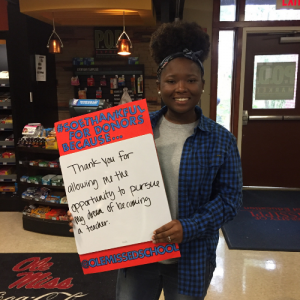 #SOSTHANKFUL
FOR DONORS
BECAUSE...
Thank you for
allowing me the
opportunity to pursue
my dream of becoming
a teacher.
@OLEMISSEDSCHOOL
Ole Miss
Coca-Cola
POD
POD